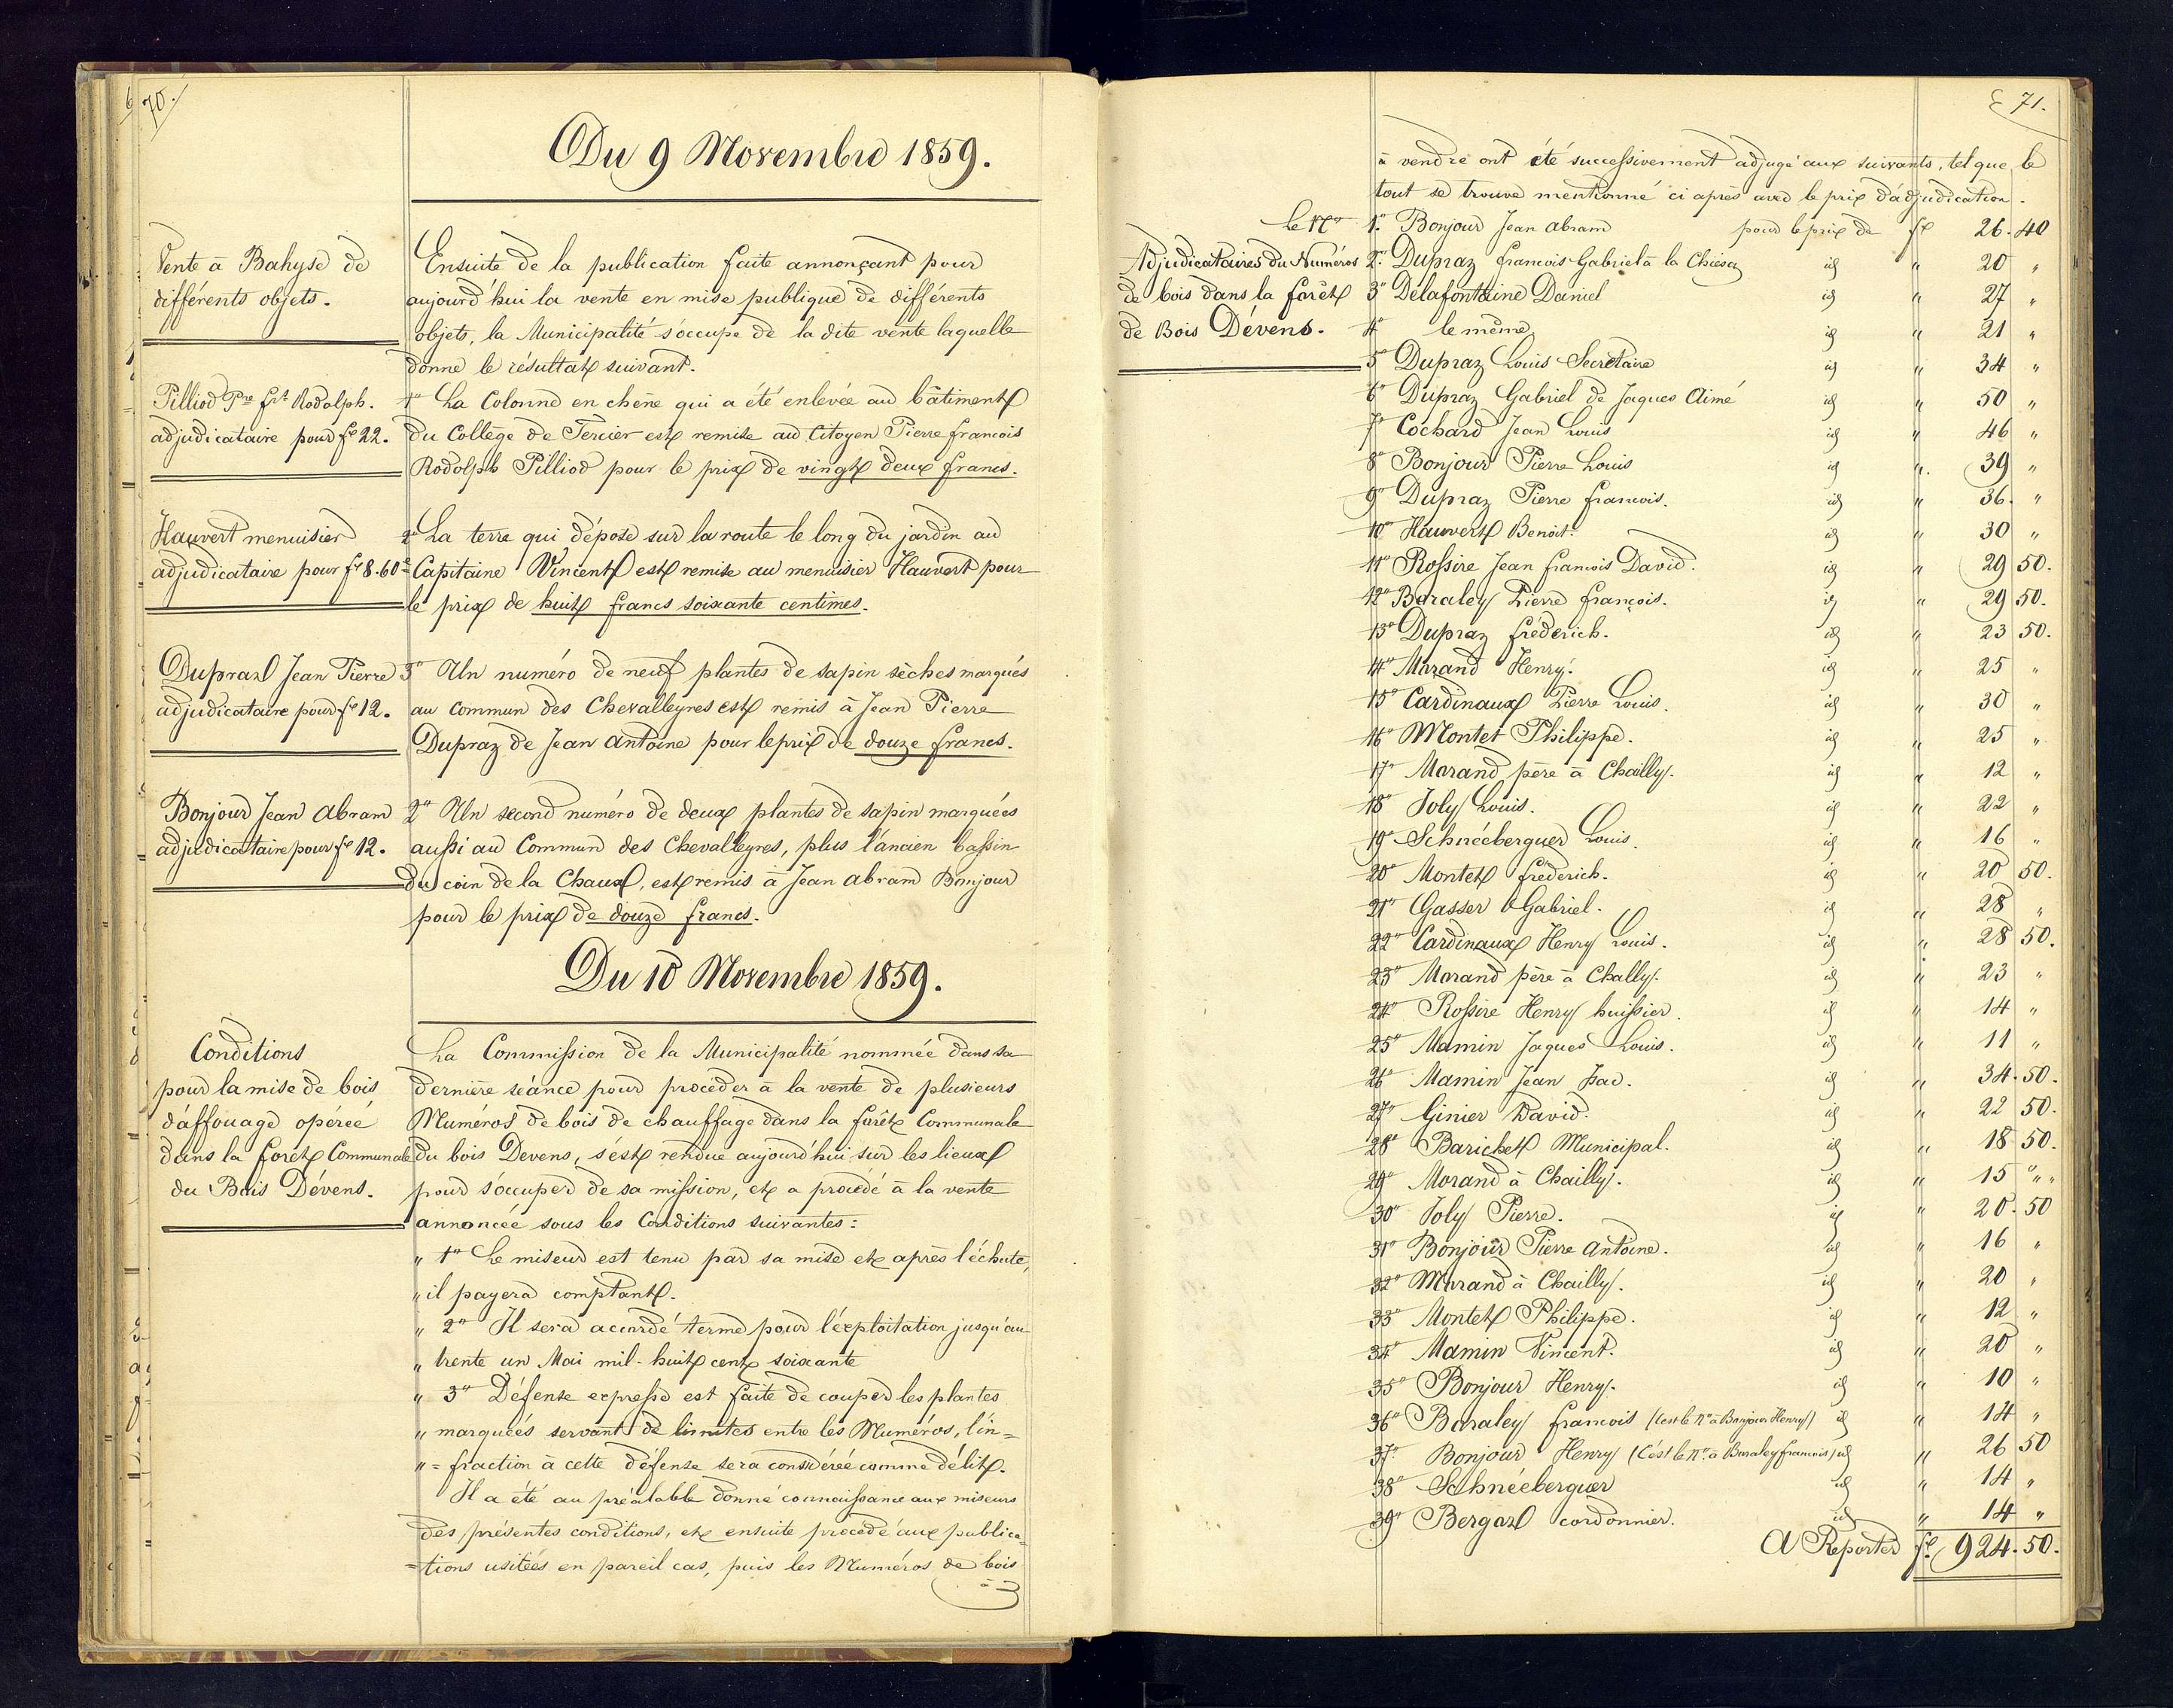 70.
Du 9 Novembre 1859.
Vente à Bahyse de
différents objets.
Ensuite de la publication faite annonçant pour
aujourd'hui la vente en mise publique de différents
objets, la Municipalité s'occupe de la dite vente laquelle
donne le résultat suivant.
Pilliod Pre fs Rodolph.
adjudicataire pour fr 22.
1o La Colonne en chêne qui a été enlevée au bâtiment
du Collège de Tercier est remise au Citoyen Pierre francois
Rodolph Pilliod pour le prix de vingt deux francs.
Hauvert menuisier
adjudicataire pour fr 8.60
2o La terre qui dépose sur la route le long du jardin au
Capitaine Vincent est remise au menuisier Hauvert pour
le prix de huit francs soixante centimes.
Dupraz Jean Pierre
adjudicataire pour fr 12.
3o Un numéro de neuf plantes de sapin sèches marqués
au commun des Chevalleyres est remis à Jean Pierre
Dupraz de Jean Antoine pour le prix de douze francs.
Bonjour Jean Abram
adjudicataire pour fr 12.
2o Un second numéro de deux plantes de sapin marquées
aussi au Commun des Chevalleyres, plus l'ancien bassin
du coin de la Chaux, est remis à Jean Abram Bonjour
pour le prix de douze francs.
Du 10 Novembre 1859.
Conditions
pour la mise de bois
d'affouage opérée
dans la forêt Communale
du Bois Dévens.
La Commission de la Municipalité nommée dans sa
dernière séance pour procéder à la vente de plusieurs
Numéros de bois de chauffage dans la forêt Communale
du bois Devens, s'est rendue aujourd'hui sur les lieux
pour s'occuper de sa mission, et a procédé à la vente
annoncée sous les Conditions suivantes:
" 1o Le miseur est tenu par sa mise et après l'échute,
" il payera comptant.
" 2o Il sera accordé terme pour l'exploitation jusqu'au
" trente un Mai mil-huit cent soixante
" 3o Défense expresse est faite de couper les plantes
" marquées servant de limites entre les Numéros, l'in=
" =fraction à cette défense sera considérée comme délit.
Il a été au préalable donné connaissance aux miseurs
des présentes conditions, et ensuite procédé aux publica=
=tions usitées en pareil cas, puis les Numéros de bois
à
71.
à vendre ont été successivement adjugé aux suivants, tel que le
tout se trouve mentionné ci après avec le prix d'adjudication.
Adjudicataires du Numéros
de bois dans la forêt
de Bois Dévens.
Le No 1o Bonjour Jean Abram pour le prix de fr 26.40
2o Dupraz francois Gabriel à la Chiésaz id " 20 "
3o Delafontaine Daniel id " 27 "
4o le même id " 21 "
5o Dupraz Louis Secrétaire id " 34 "
6o Dupraz Gabriel de Jaques Aimé id " 50 "
7o Cochard Jean Louis id " 46 "
8o Bonjour Pierre Louis id " 39 "
9o Dupraz Pierre francois. id " 36. "
10o Hauvert Benoit. id " 30 "
11o Rossire Jean francois David. id " 29 50.
12o Baraley Pierre françois. id " 29 50.
13o Dupraz frederich. id " 23 50.
14o Morand Henry. id " 25 "
15o Cardinaux Pierre Louis. id " 30 "
16o Montet Philippe. id " 25 "
17o Morand père à Chailly. id " 12 "
18o Joly Louis. id " 22 "
19o Schnéeberguer Louis. id " 16 "
20o Montet fréderich. id " 20 50.
21o Gasser Gabriel. id " 28 "
22o Cardinaux Henry Louis. id " 28 50.
23o Morand père à Chally. id " 23 "
24o Rossire Henry huissier. id " 14 "
25o Mamin Jaques Louis. id " 11 "
26o Mamin Jean Isac. id " 34.50.
27o Ginier David. id " 22 50.
28o Barichet Municipal. id " 18 50.
29o Morand à Chailly. id " 15 "
30o Joly Pierre. id " 20.50
31o Bonjour Pierre Antoine. id " 16 "
32o Morand à Chailly. id " 20 "
33o Montet Philippe. id " 12 "
34o Mamin Vincent. id " 20 "
35o Bonjour Henry. id " 10 "
36o Baraley francois (C'est le No à Bonjour Henry) id " 14 "
37o Bonjour Henry (C'est le No à Baraley francois) id " 26 50
38o Schnéeberguer id " 14 "
39o Bergaz cordonnier. id " 14 "
A Reporter fr. 924.50.